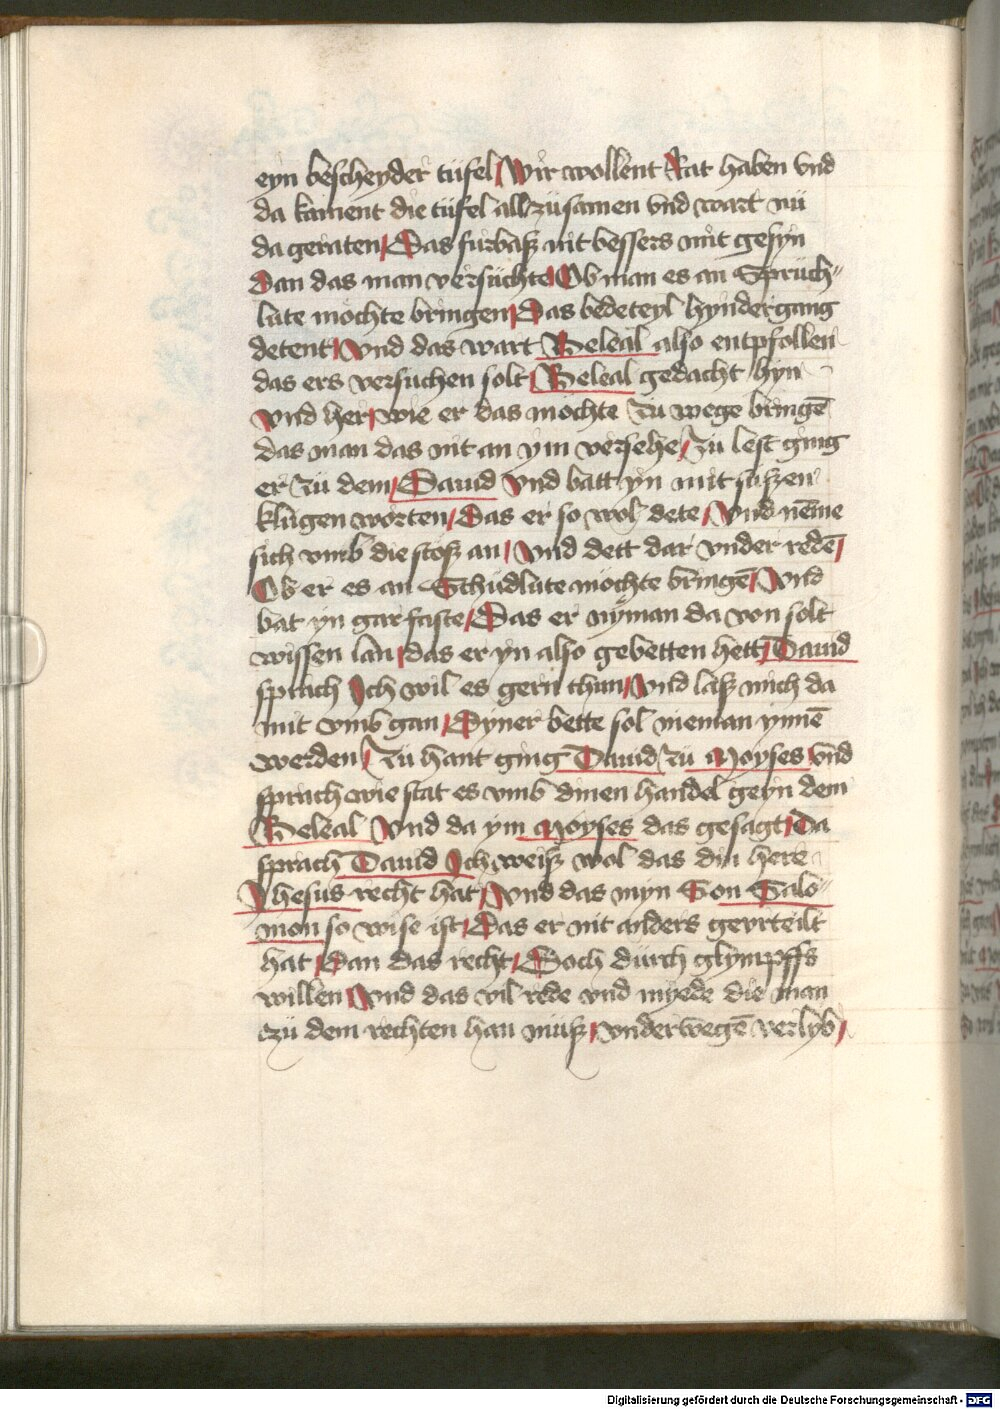 eyn bescheyder tüfel / Wir wollent Rat haben vnd
da kament die tüfel all zü samen vnd wart nü
da geraten / Das furbasz nit bessers mit gesyn
Dan das man versüchte Ob man es an Sprüch⸗
lüte möchte bringen / Das bedeteyl hyndergang
detent / Vnd das wart Beleal also entpfollen
das ers versuchen solt / Beleal gedacht hyn
vnd her / wie er das möchte zu wege bringē
das man das nit an ym versehe / zu lest ging
er zü dem / Dauid vnd batt yn mit süszen
klügen worten / Das er so wol dete / Vnd nēme
sich vmb die stösz an / Vnd dett dar vnder redē /
Ob er es an Schüdlüte möchte bringē / Vnd
bat yn gar faste / Das er nyman da von solt
wissen lan / das er yn also gebetten hett / Dauid
sprach Ich wil es gern thun / Vnd lasz mich da
mit vmb gan / Dyner bette sol nieman ynnē
werden / zu hant ging Dauid zü Moyses vnd
sprach wie stat es vmb dinen handel geyn dem
Beleal Vnd da ym Moyses das gesagt / Da
sprach Dauid Ich weisz wol das din here
Jhesus recht hat / Vnd das myn Son Salo⸗
mon so wise ist / Das er nit anders gevrteilt
hat / Dan das recht / Doch dürch glympffs
willen / Vnd das vil rede vnd myede die man
zü dem rechten han müsz / vnderwegē verlyb /
Digitalisierung gefördert durch die Deutsche Forschungsgemeinschaft - DFG